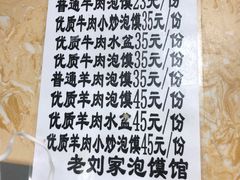 普通牛肉泡馍25元/份
优质牛肉泡馍35元/份
优质牛肉小炒泡馍35元/份
优质牛肉水盆35元/份
普通羊肉泡馍35元/份
优质羊肉泡馍45元/份
优质羊肉水盆45元/份
优质羊肉小炒泡馍45元/份
老刘家泡馍馆